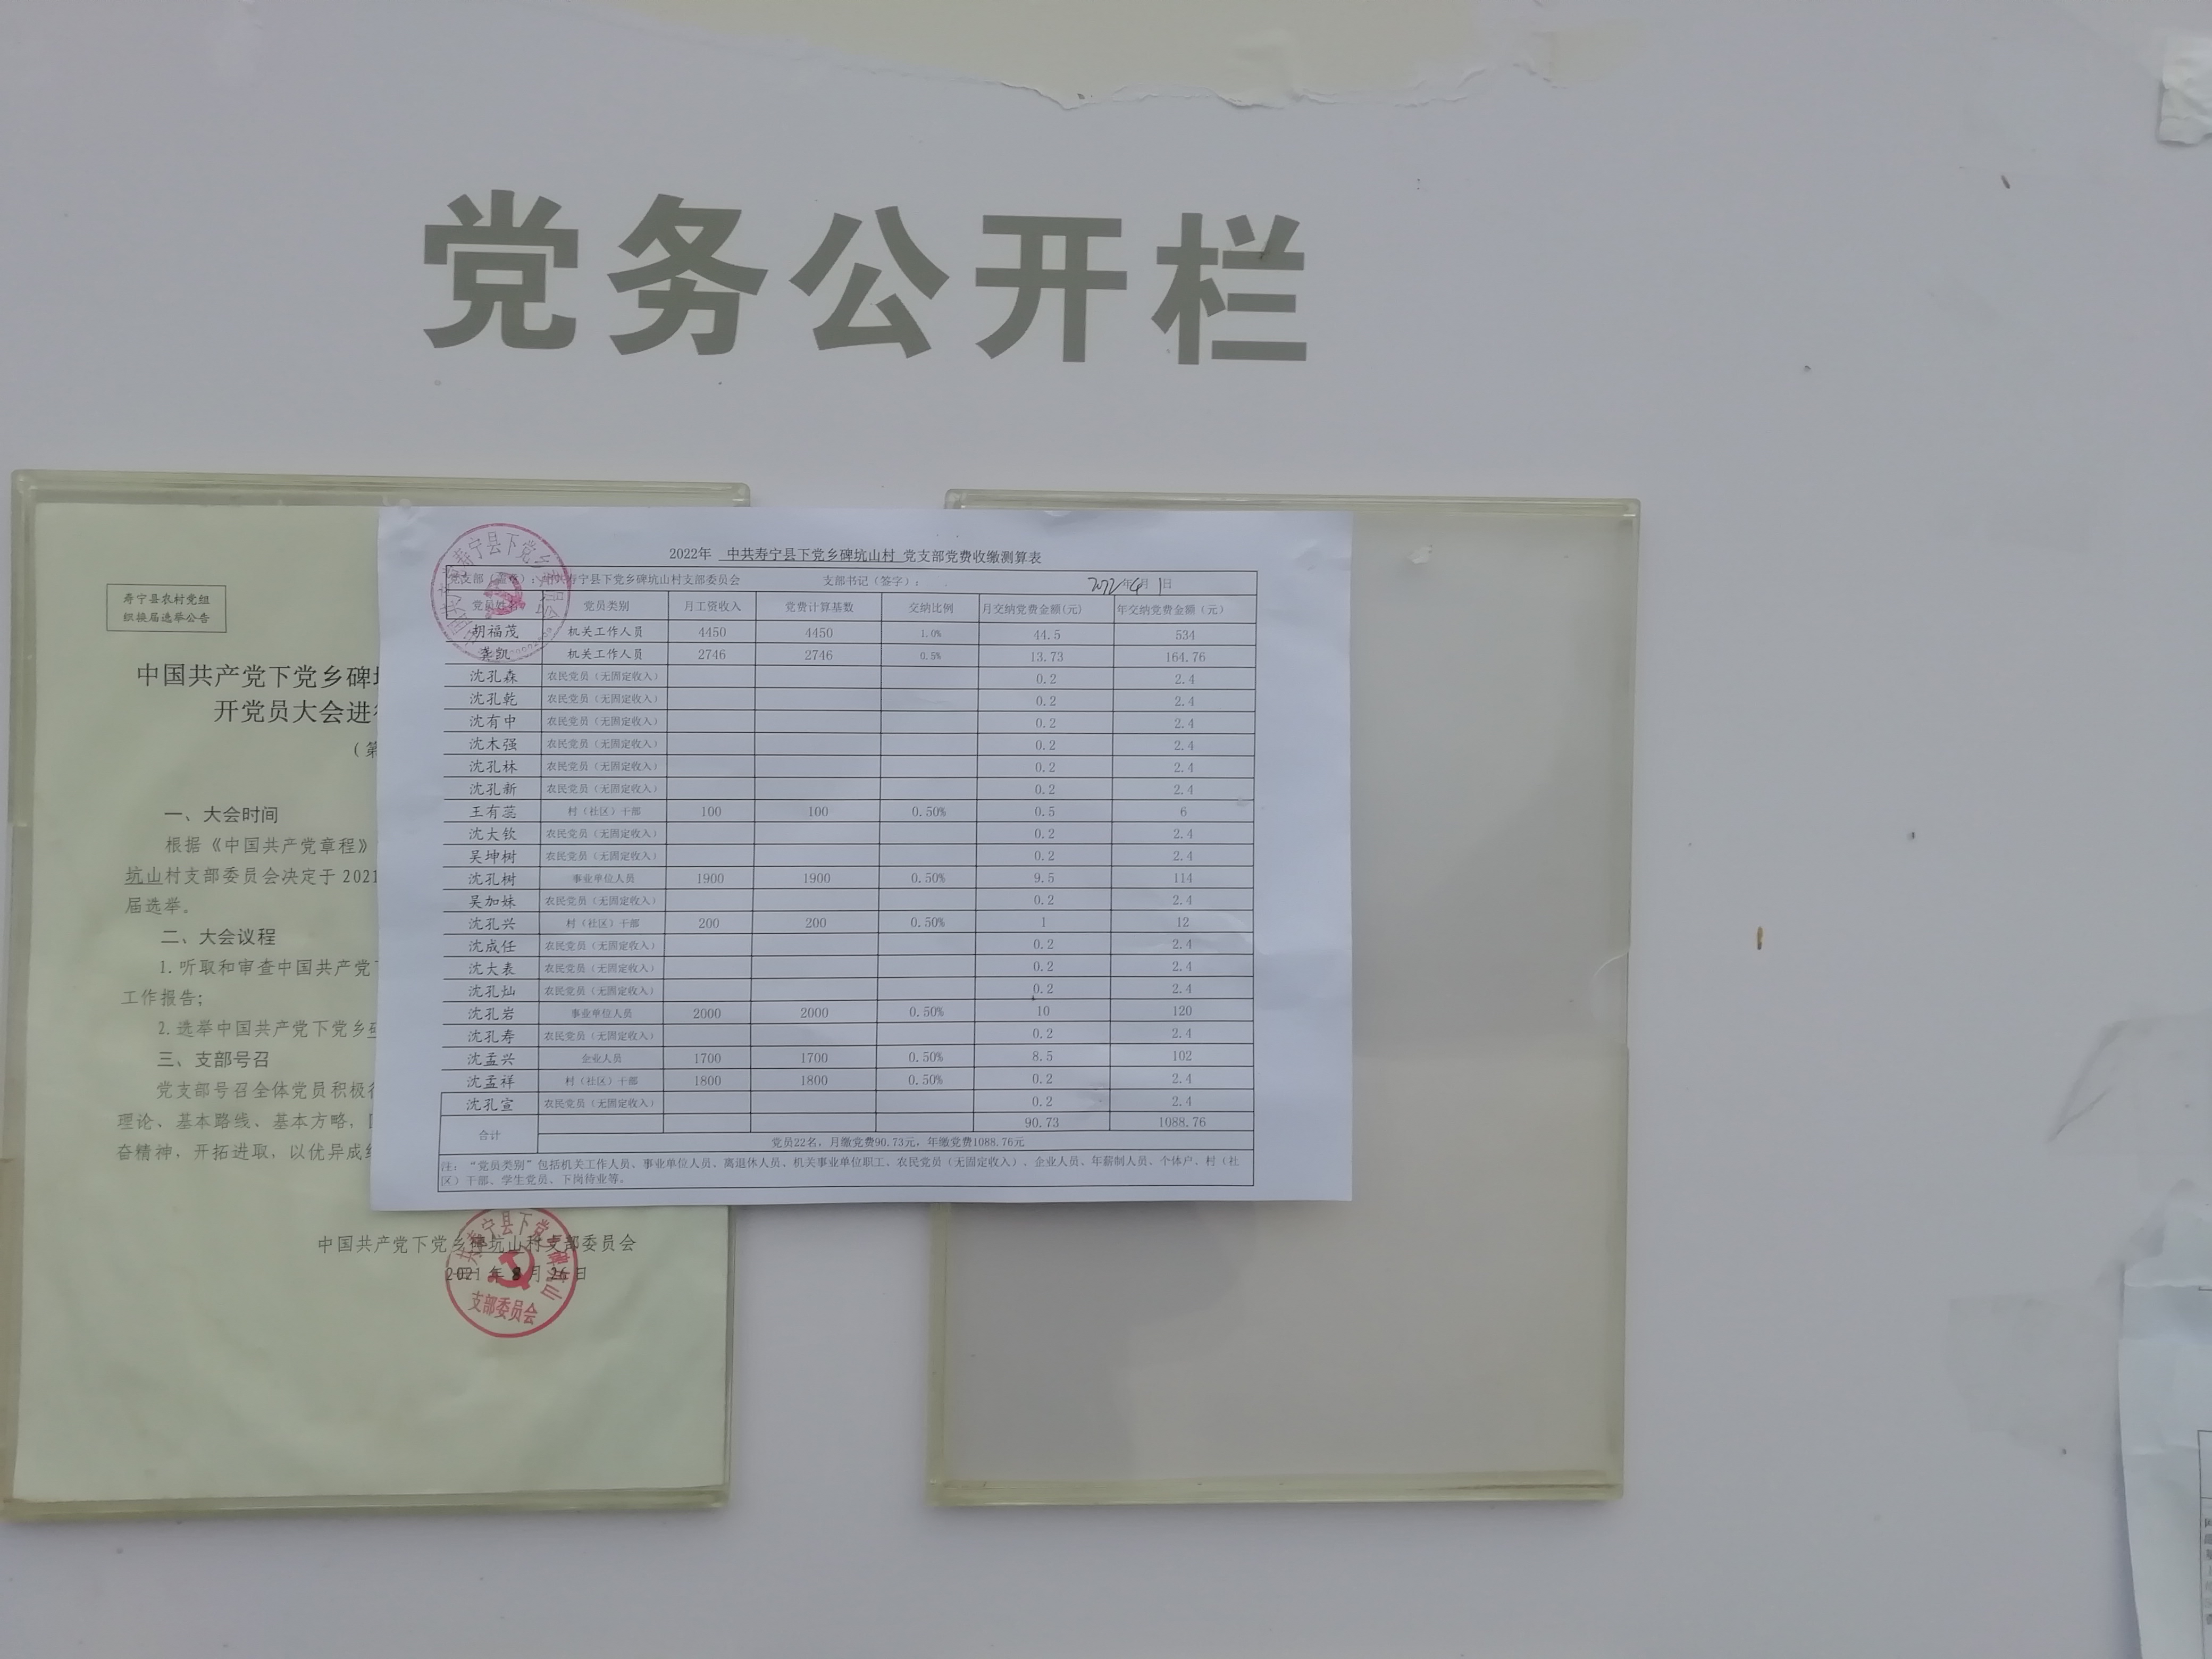 党务公开栏
寿宁县农村党组
织换届选举公告
中国共产党下党乡碑坑
开党员大会进行
（第
一、大会时间
根据《中国共产党章程》
坑山村支部委员会决定于2021
届选举。
二、大会议程
1.听取和审查中国共产党下
工作报告；
2.选举中国共产党下党乡碑
三、支部号召
党支部号召全体党员积极行
理论、基本路线、基本方略，
奋精神，开拓进取，以优异成绩
中国共产党下党乡碑坑山村支部委员会
2021年8月26日
支部委员会
2022年 中共寿宁县下党乡碑坑山村 党支部党费收缴测算表
党支部（盖章）：中共寿宁县下党乡碑坑山村支部委员会 支部书记（签字）： 2022年4月1日
党员姓名 党员类别 月工资收入 党费计算基数 交纳比例 月交纳党费金额(元) 年交纳党费金额（元）
胡福茂 机关工作人员 4450 4450 1.0% 44.5 534
龚凯 机关工作人员 2746 2746 0.5% 13.73 164.76
沈孔森 农民党员（无固定收入） 0.2 2.4
沈孔乾 农民党员（无固定收入） 0.2 2.4
沈有中 农民党员（无固定收入） 0.2 2.4
沈木强 农民党员（无固定收入） 0.2 2.4
沈孔林 农民党员（无固定收入） 0.2 2.4
沈孔新 农民党员（无固定收入） 0.2 2.4
王有蕊 村（社区）干部 100 100 0.50% 0.5 6
沈大钦 农民党员（无固定收入） 0.2 2.4
吴坤树 农民党员（无固定收入） 0.2 2.4
沈孔树 事业单位人员 1900 1900 0.50% 9.5 114
吴加妹 农民党员（无固定收入） 0.2 2.4
沈孔兴 村（社区）干部 200 200 0.50% 1 12
沈成任 农民党员（无固定收入） 0.2 2.4
沈大表 农民党员（无固定收入） 0.2 2.4
沈孔灿 农民党员（无固定收入） 0.2 2.4
沈孔岩 事业单位人员 2000 2000 0.50% 10 120
沈孔寿 农民党员（无固定收入） 0.2 2.4
沈孟兴 企业人员 1700 1700 0.50% 8.5 102
沈孟祥 村（社区）干部 1800 1800 0.50% 0.2 2.4
沈孔宣 农民党员（无固定收入） 0.2 2.4
合计 90.73 1088.76
党员22名，月缴党费90.73元，年缴党费1088.76元
注：“党员类别”包括机关工作人员、事业单位人员、离退休人员、机关事业单位职工、农民党员（无固定收入）、企业人员、年薪制人员、个体户、村（社
区）干部、学生党员、下岗待业等。